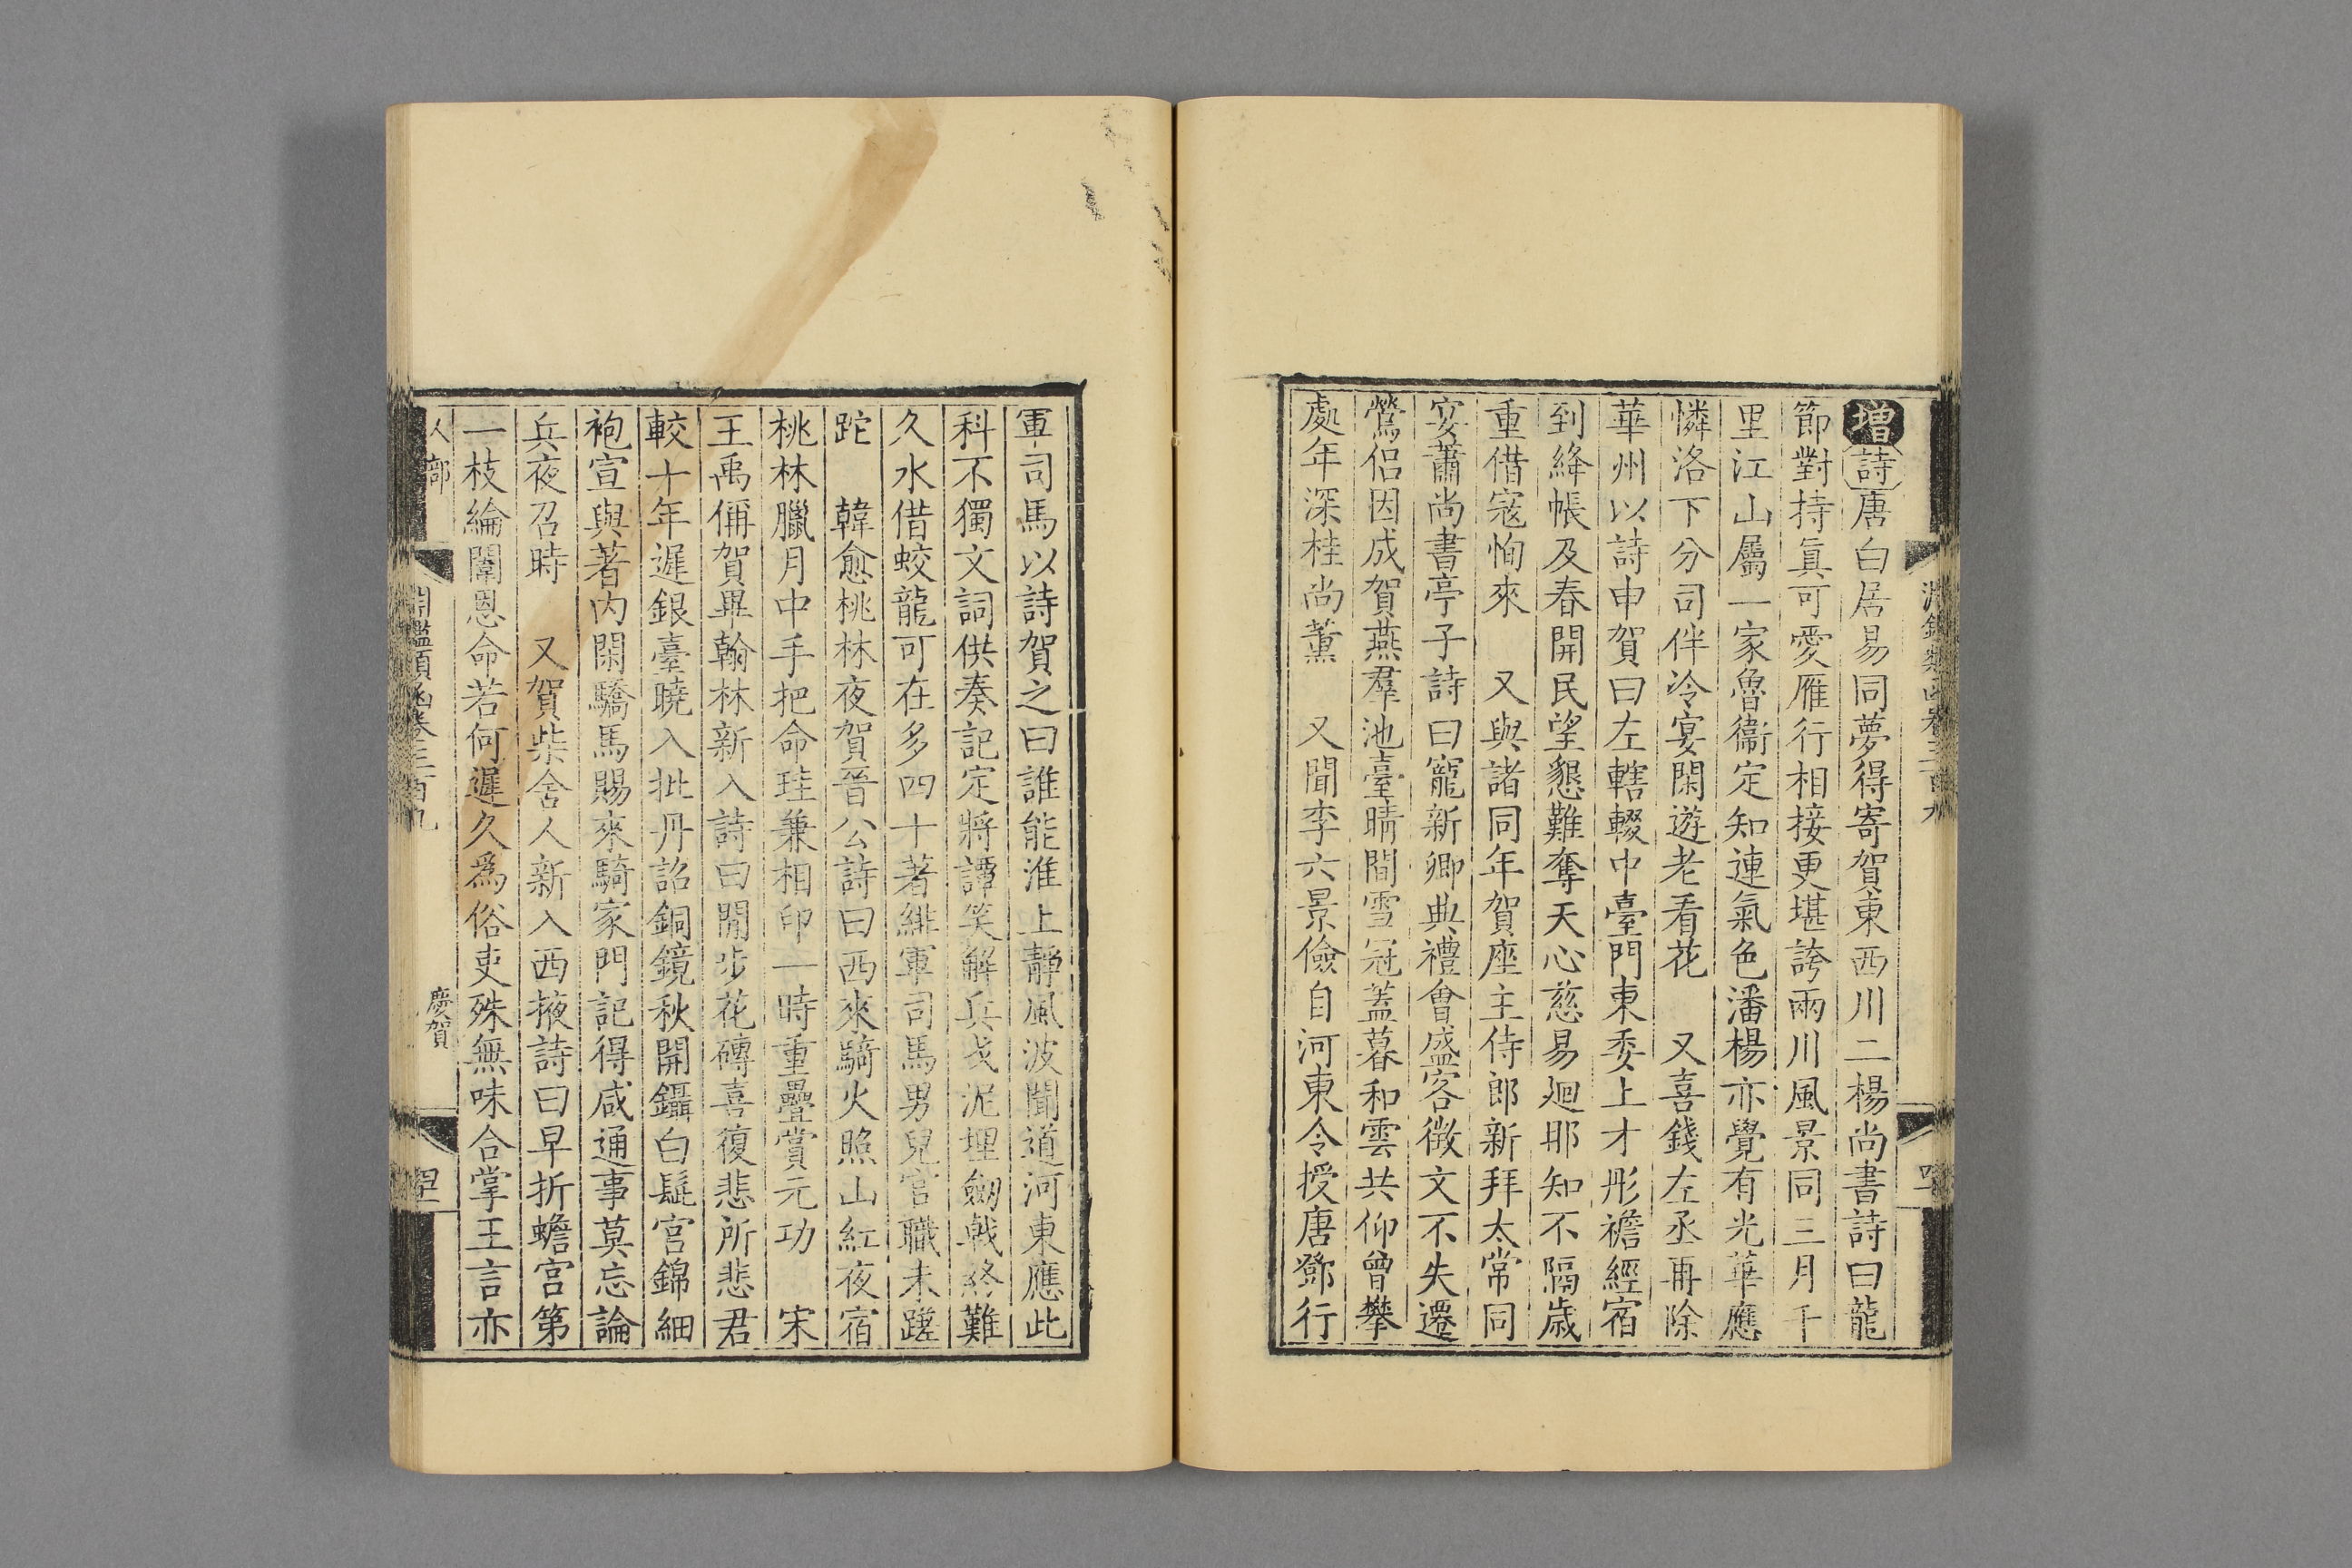 增詩唐白居易同夢得寄賀東西川二楊尚書詩曰龍
節對持眞可愛雁行相接更堪誇兩川風景同三月千
里江山屬一家魯衞定知連氣色潘楊亦覺有光華應
憐洛下分司伴冷宴閑遊老看花　又喜錢左丞再除
華州以詩申賀曰左轄輟中臺門東委上才彤襜經宿
到絳帳及春開民望懇難奪天心慈易廻那知不隔歲
重借寇恂來　又與諸同年賀座主侍郎新拜太常同
宴蕭尚書亭子詩曰寵新卿典禮會盛客徵文不失遷
鶯侶因成賀燕羣池臺晴間雪冠蓋暮和雲共仰曾攀
處年深桂尚薰　又聞李六景儉自河東令授唐鄧行
軍司馬以詩賀之曰誰能淮上靜風波聞道河東應此
科不獨文詞供奏記定將譚笑解兵戈泥埋劒戟終難
久水借蛟龍可在多四十著緋軍司馬男兒官職未蹉
跎　韓愈桃林夜賀晉公詩曰西來騎火照山紅夜宿
桃林臘月中手把命珪兼相印一時重疊賞元功　宋
王禹偁賀畢翰林新入詩曰閒步花磚喜復悲所悲君
較十年遲銀臺曉入批丹詔銅鏡秋開鑷白髭宮錦細
袍宣與著內閑驕馬賜來騎家門記得咸通事莫忘論
兵夜召時　又賀柴舍人新入西掖詩曰早折蟾宮第
一枝綸闈恩命若何遲久爲俗吏殊無味合掌王言亦
人部
淵鑑類函卷三百九
慶賀